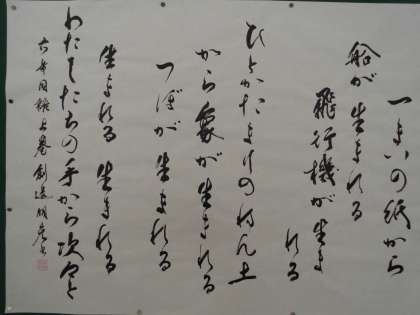 一まいの紙から
船が生まれる
飛行機が生ま
れる
ひとかたまりのねん土
から象が生まれる
つぼが生まれる
生まれる 生まれる
わたしたちの手から次々と